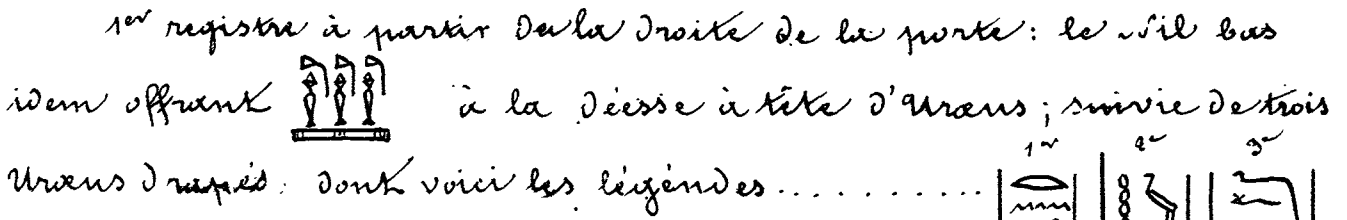 1er registre à partir de la droite de la porte : le Nil bas
idem offrant à la Déesse à tête d'Uræus ; suivie de trois
1er 2e 3e
Uræus drapés. Dont voici les légendes...........